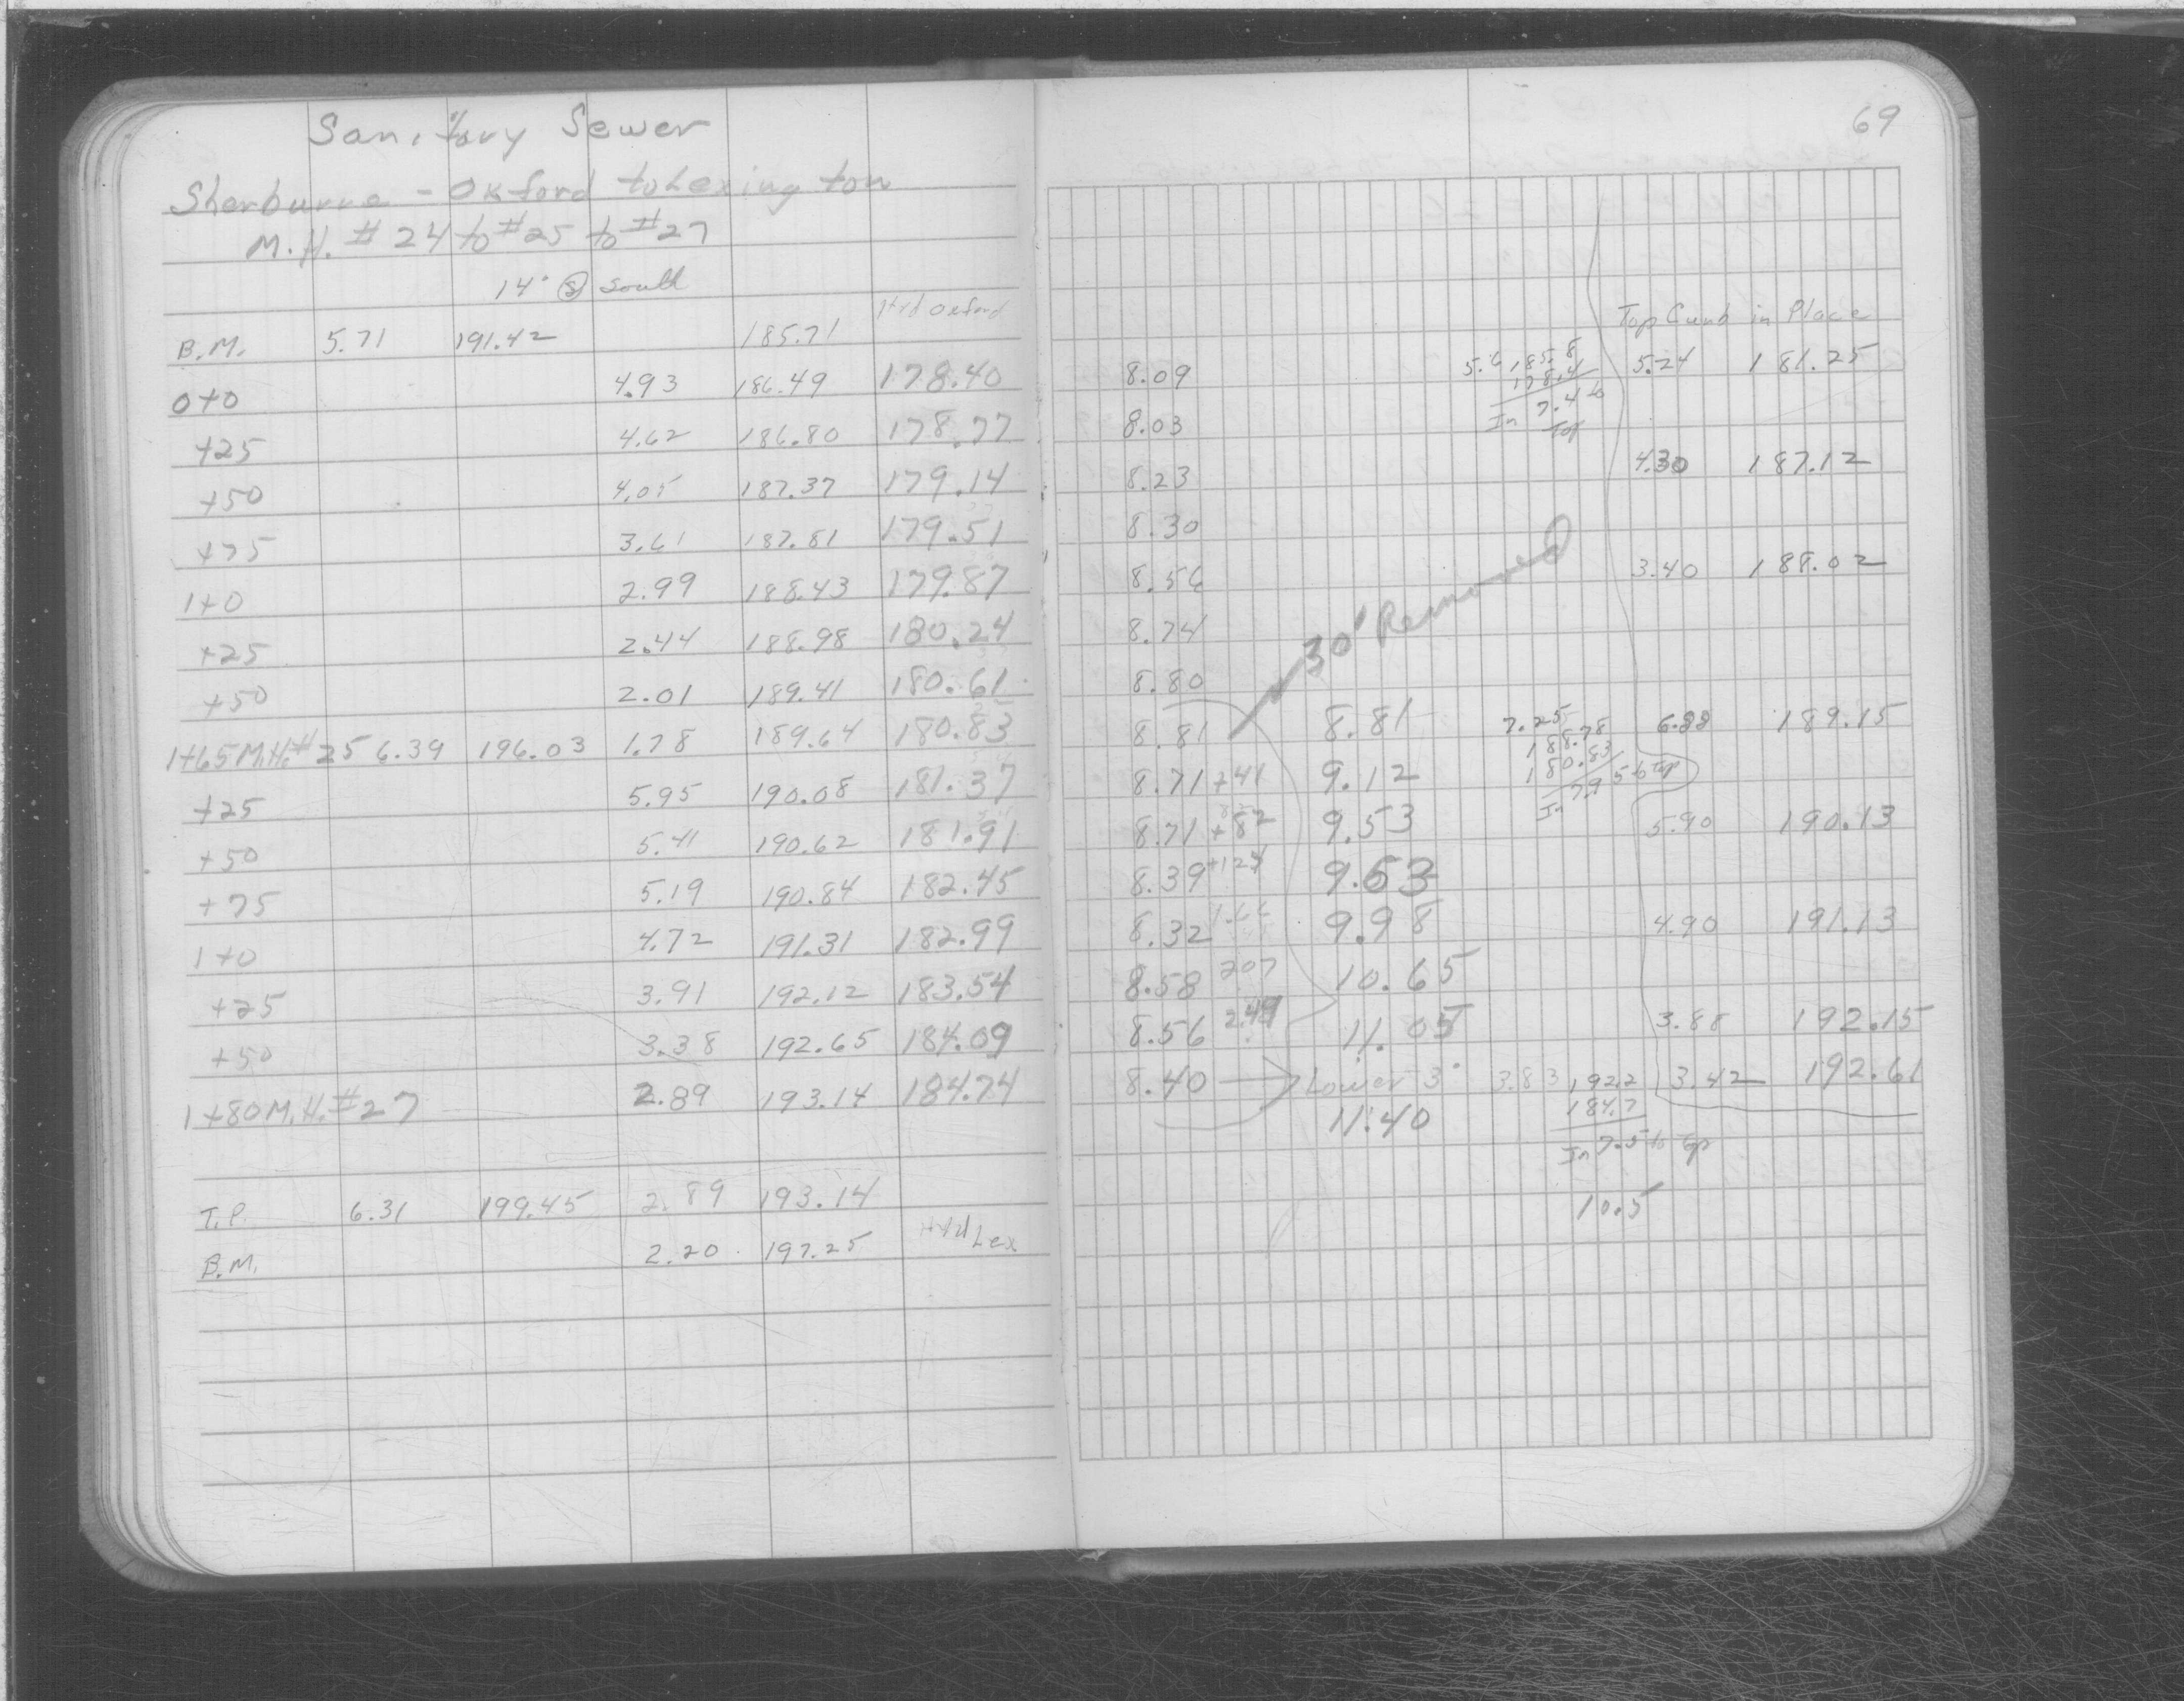 Sanitary Sewer
69
Sherburne - Oxford to Lexington
M.H. # 24 to #25 to #27
14' @ South
Top Curb in Place
B.M. 5.71 191.42 185.71 Hyd Oxford
0+0 4.93 186.49 178.40 8.09 5.6 185.8 5.24 181.25
178.4
In 7.4 to Top
+25 4.62 186.80 178.77 8.03
+50 4.05 187.37 179.14 8.23 4.30 187.12
+75 3.61 187.81 179.51 8.30
1+0 2.99 188.43 179.87 8.56 3.40 188.02
+25 2.44 188.98 180.24 8.74
30' Removed
+50 2.01 189.41 180.61 8.80
1+65 M.H.# 25 6.39 196.03 1.78 189.64 180.83 8.81 8.81 7.25 6.88 189.15
188.78
180.83
In 7.95 to Top
+25 5.95 190.08 181.37 8.71 +41 9.12
+50 5.41 190.62 181.91 8.71 +82 9.53 5.90 190.13
+75 5.19 190.84 182.45 8.39 +124 9.63
1+0 4.72 191.31 182.99 8.32 1.66 9.98 4.90 191.13
+25 3.91 192.12 183.54 8.58 207 10.65
+50 3.38 192.65 184.09 8.56 2.49 11.05 3.88 192.15
1+80 M.H.#27 2.89 193.14 184.74 8.40 Lower 3' 3.83 192.2 3.42 192.61
11.40 184.7
In 7.5 to Top
T.P. 6.31 199.45 2.89 193.14
10.5
B.M. 2.20 197.25 Hyd Lex